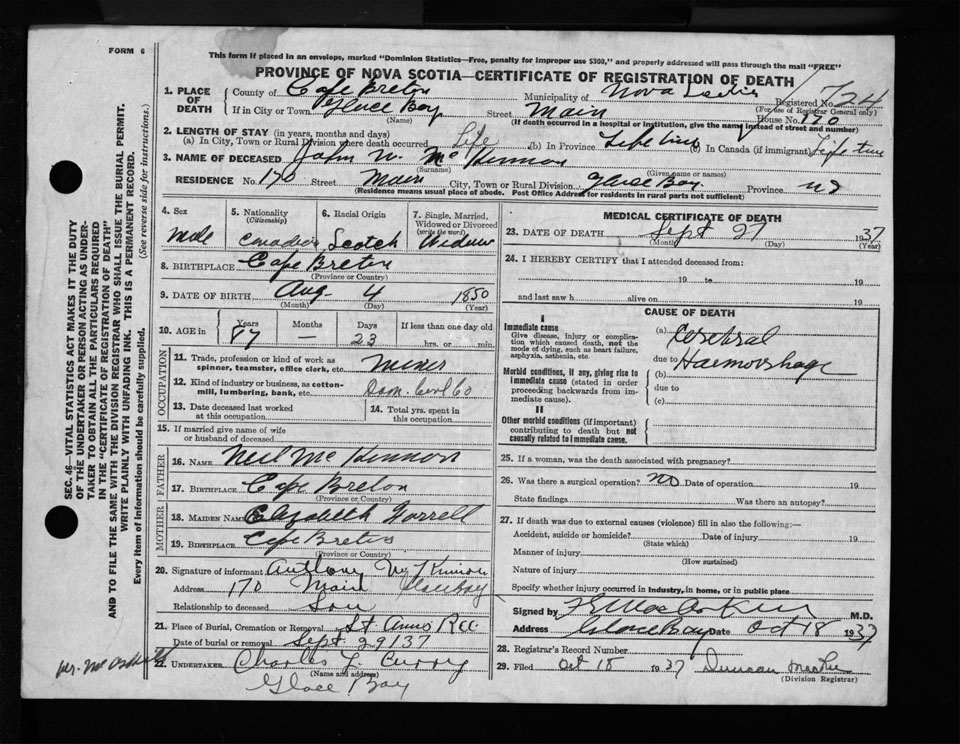 FORM 6
This form if placed in an envelope, marked "Dominion Statistics—Free, penalty for improper use $300," and properly addressed will pass through the mail "FREE"
PROVINCE OF NOVA SCOTIA—CERTIFICATE OF REGISTRATION OF DEATH
1. PLACE OF DEATH County of Cape Breton Municipality of Nova Scotia Registered No. 1724
(For use of Registrar General only)
If in City or Town Glace Bay Street Main House No. 170
(Name) (If death occurred in a hospital or institution, give the name instead of street and number)
2. LENGTH OF STAY (in years, months and days)
(a) In City, Town or Rural Division where death occurred Life (b) In Province Life time (c) In Canada (if immigrant) Life time
3. NAME OF DECEASED John W. McKinnon
(Surname) (Given name or names)
RESIDENCE No. 170 Street Main City, Town or Rural Division Glace Bay. Province NS
(Residence means usual place of abode. Post Office Address for residents in rural parts not sufficient)
4. Sex Male
5. Nationality (Citizenship) Canadian
6. Racial Origin Scotch
7. Single, Married, Widowed or Divorced (write the word) Widower
8. BIRTHPLACE Cape Breton
(Province or Country)
9. DATE OF BIRTH Aug. 4 1850
(Month) (Day) (Year)
10. AGE in Years Months Days If less than one day old
87 — 23 hrs. or min.
OCCUPATION
11. Trade, profession or kind of work as spinner, teamster, office clerk, etc. Miner
12. Kind of industry or business, as cotton-mill, lumbering, bank, etc. Dom. Coal Co
13. Date deceased last worked at this occupation
14. Total yrs. spent in this occupation
15. If married give name of wife or husband of deceased
FATHER
16. NAME Neil McKinnon
17. BIRTHPLACE Cape Breton
(Province or Country)
MOTHER
18. MAIDEN NAME Elizabeth Gorrell
19. BIRTHPLACE Cape Breton
(Province or Country)
20. Signature of informant Anthony McKinnon
Address 170 Main Glace Bay
Relationship to deceased Son
21. Place of Burial, Cremation or Removal St Anns
Date of burial or removal Sept 29/37
22. UNDERTAKER Charles J. Curry
(Name and address)
Glace Bay
MEDICAL CERTIFICATE OF DEATH
23. DATE OF DEATH Sept 27 1937
(Month) (Day) (Year)
24. I HEREBY CERTIFY that I attended deceased from:
19 to 19
and last saw h alive on 19
CAUSE OF DEATH
I
Immediate cause
Give disease, injury or complication which caused death, not the mode of dying, such as heart failure, asphyxia, asthenia, etc.
(a) Cerebral
due to Haemorrhage
Morbid conditions, if any, giving rise to immediate cause (stated in order proceeding backwards from immediate cause).
(b)
due to
(c)
II
Other morbid conditions (if important) contributing to death but not causally related to immediate cause.
25. If a woman, was the death associated with pregnancy?
26. Was there a surgical operation? NO Date of operation 19
State findings Was there an autopsy?
27. If death was due to external causes (violence) fill in also the following:—
Accident, suicide or homicide? Date of injury 19
(State which)
Manner of injury
(How sustained)
Nature of injury
Specify whether injury in Industry, in home, or in public place
Signed by M.D.
Address Glace Bay Date Oct 18 1937
28. Registrar's Record Number
29. Filed Oct 18 1937 Duncan
(Division Registrar)
SEC. 46—VITAL STATISTICS ACT MAKES IT THE DUTY
OF THE UNDERTAKER OR PERSON ACTING AS UNDER-
TAKER TO OBTAIN ALL THE PARTICULARS REQUIRED
IN THE "CERTIFICATE OF REGISTRATION OF DEATH"
AND TO FILE THE SAME WITH THE DIVISION REGISTRAR WHO SHALL ISSUE THE BURIAL PERMIT.
WRITE PLAINLY WITH UNFADING INK. THIS IS A PERMANENT RECORD.
Every item of information should be carefully supplied. (See reverse side for instructions.)